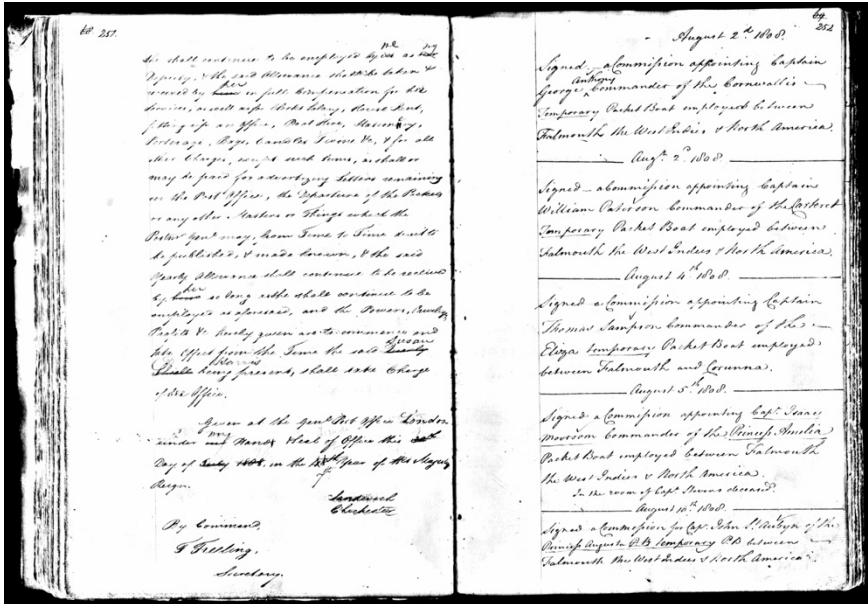 68 251.
She shall continue to be employed by me as my
Deputy, & the said Allowance shall be taken &
received by her in full Compensation for
Services, as well as for Clerks Salary, House Rent,
fitting up an Office, Boat Hire, Stationery,
Porterage, Bags, Candles Twine &c, & for all
other Charges, except such sums, as shall or
may be paid for advertizing Letters remaining
in the Post Office, the Departure of the Packets
or any other Matters or Things which the
Postmr Genl may, from Time to Time direct to
be published, & made known, & the said
Yearly Allowance shall continue to be received
by her so long as she shall continue to be
employed as aforesaid, and the Powers,
Profits &c hereby given are to commence and
take Effect from the Time the said Susan
being present, shall take Charge
of the Office.
Given at the Genl Post Office London
under my Hand & Seal of Office this
Day of July 1808, in the Year of His Majesty's
Reign.
Sandwich
Chichester
By Command,
F Freeling,
Secretary.
69
252
August 2d 1808.
Signed - a Commission appointing Captain
George Anthony Commander of the Cornwallis
Temporary Packet Boat employed between
Falmouth the West Indies & North America.
Augt 2d 1808.
Signed - a Commission appointing Captain
William Paterson Commander of the Carteret
Temporary Packet Boat employed between
Falmouth the West Indies & North America.
August 4th 1808.
Signed a Commission appointing Captain
Thomas Sampson Commander of the
Eliza temporary Packet Boat employed
between Falmouth and Corunna.
August 5th 1808.
Signed a Commission appointing Capt. Isaac
Morrison Commander of the Princess Amelia
Packet Boat employed between Falmouth
the West Indies & North America.
In the room of Capt. Stevens deceased.
August 10th 1808.
Signed a Commission for Capt. John St Aubyn of the
Princess Augusta P.B. temporary P.B between
Falmouth the West Indies & North America.